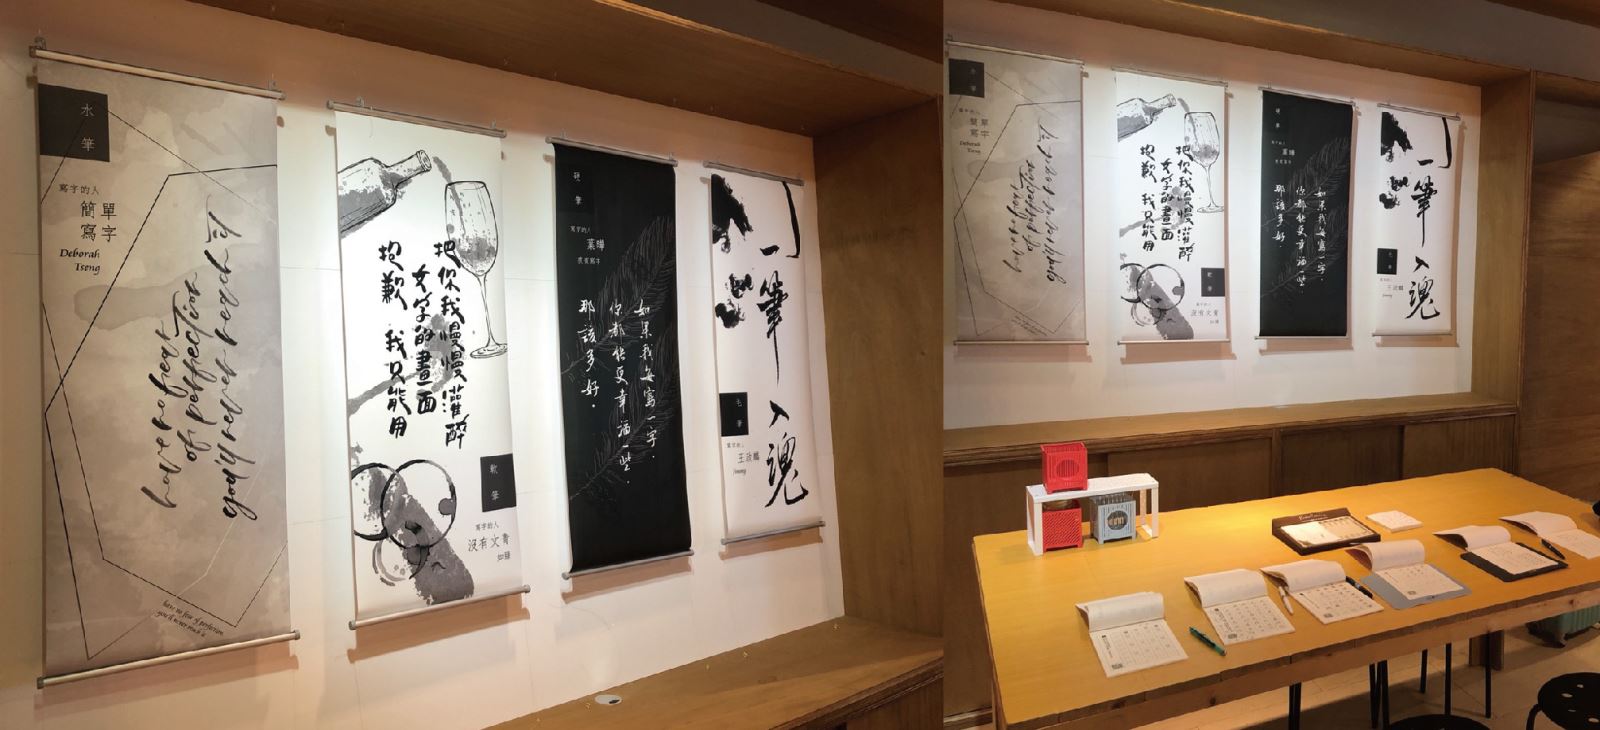 水筆
寫字的人
簡單
寫字
Deborah
Tseng
have no fear
of perfection
you'll never reach it
have no fear of perfection
you'll never reach it
把你我慢慢灌醉
文字的畫面
抱歉 我只能用
軟筆
寫字的人
沒有文青
如臻
硬筆
寫字的人
葉曄
夜夜寫字
如果我每寫一字．
你都能更幸福一些．
那該多好．
一筆入魂
毛筆
寫字的人
水筆
寫字的人
簡單
寫字
Deborah
Tseng
have no fear
of perfection
you'll never reach it
把你我慢慢灌醉
文字的畫面
抱歉 我只能用
軟筆
寫字的人
沒有文青
硬筆
寫字的人
葉曄
如果我每寫一字．
你都能更幸福一些．
那該多好．
一筆入魂
毛筆